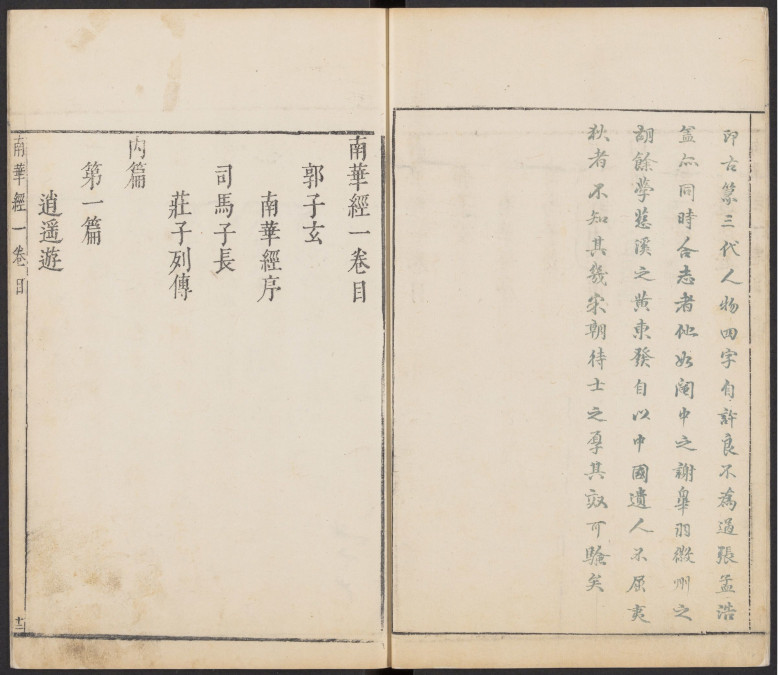 印古第三代人物四字自許良不為過張孟浩
蓋亦同時合志者他如閩中之謝皐羽徽州之
胡餘學慈溪之黃東發自以中國遺人不屈夷
狄者不知其幾宋朝待士之厚其效可驗矣
南華經一卷目
郭子玄
南華經序
司馬子長
莊子列傳
內篇
第一篇
逍遥遊
南華經一卷 目
十二